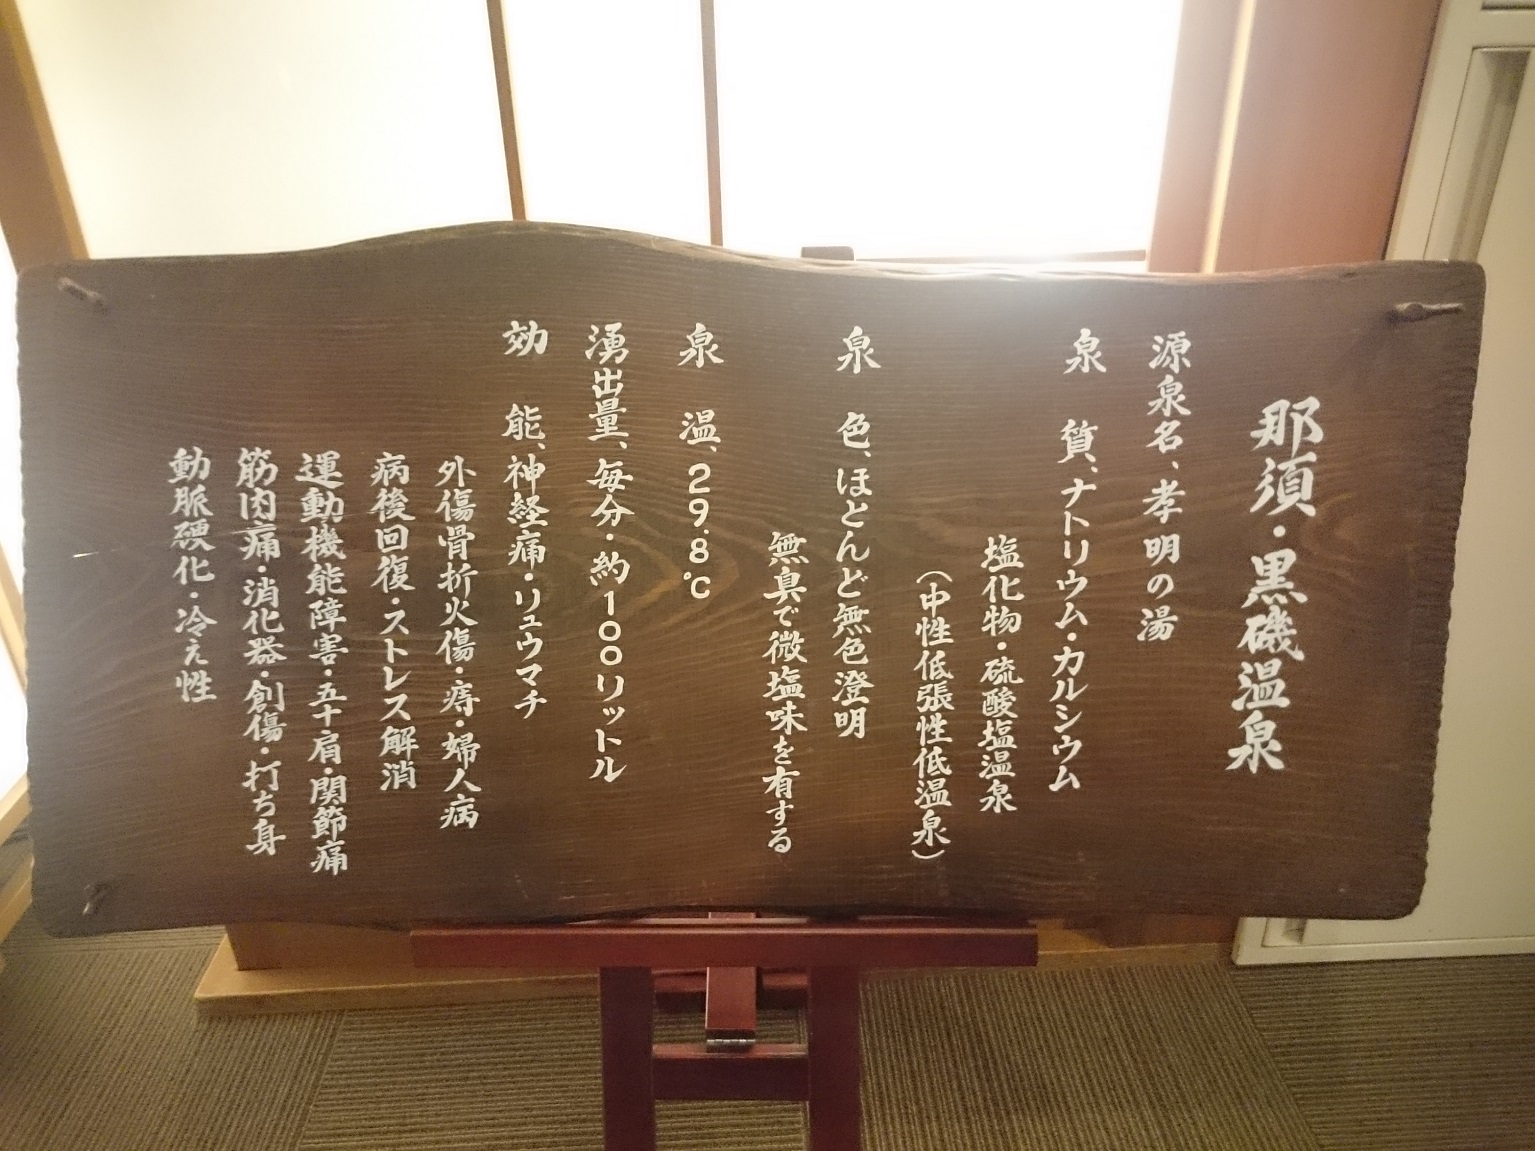 那須・黒磯温泉
源泉名、孝明の湯
泉 質、ナトリウム・カルシウム
塩化物・硫酸塩温泉
（中性低張性低温泉）
泉 色、ほとんど無色澄明
無臭で微塩味を有する
泉 温、29.8℃
湧出量、毎分・約100リットル
効 能、神経痛・リュウマチ
外傷骨折火傷・痔・婦人病
病後回復・ストレス解消
運動機能障害・五十肩・関節痛
筋肉痛・消化器・創傷・打ち身
動脈硬化・冷え性